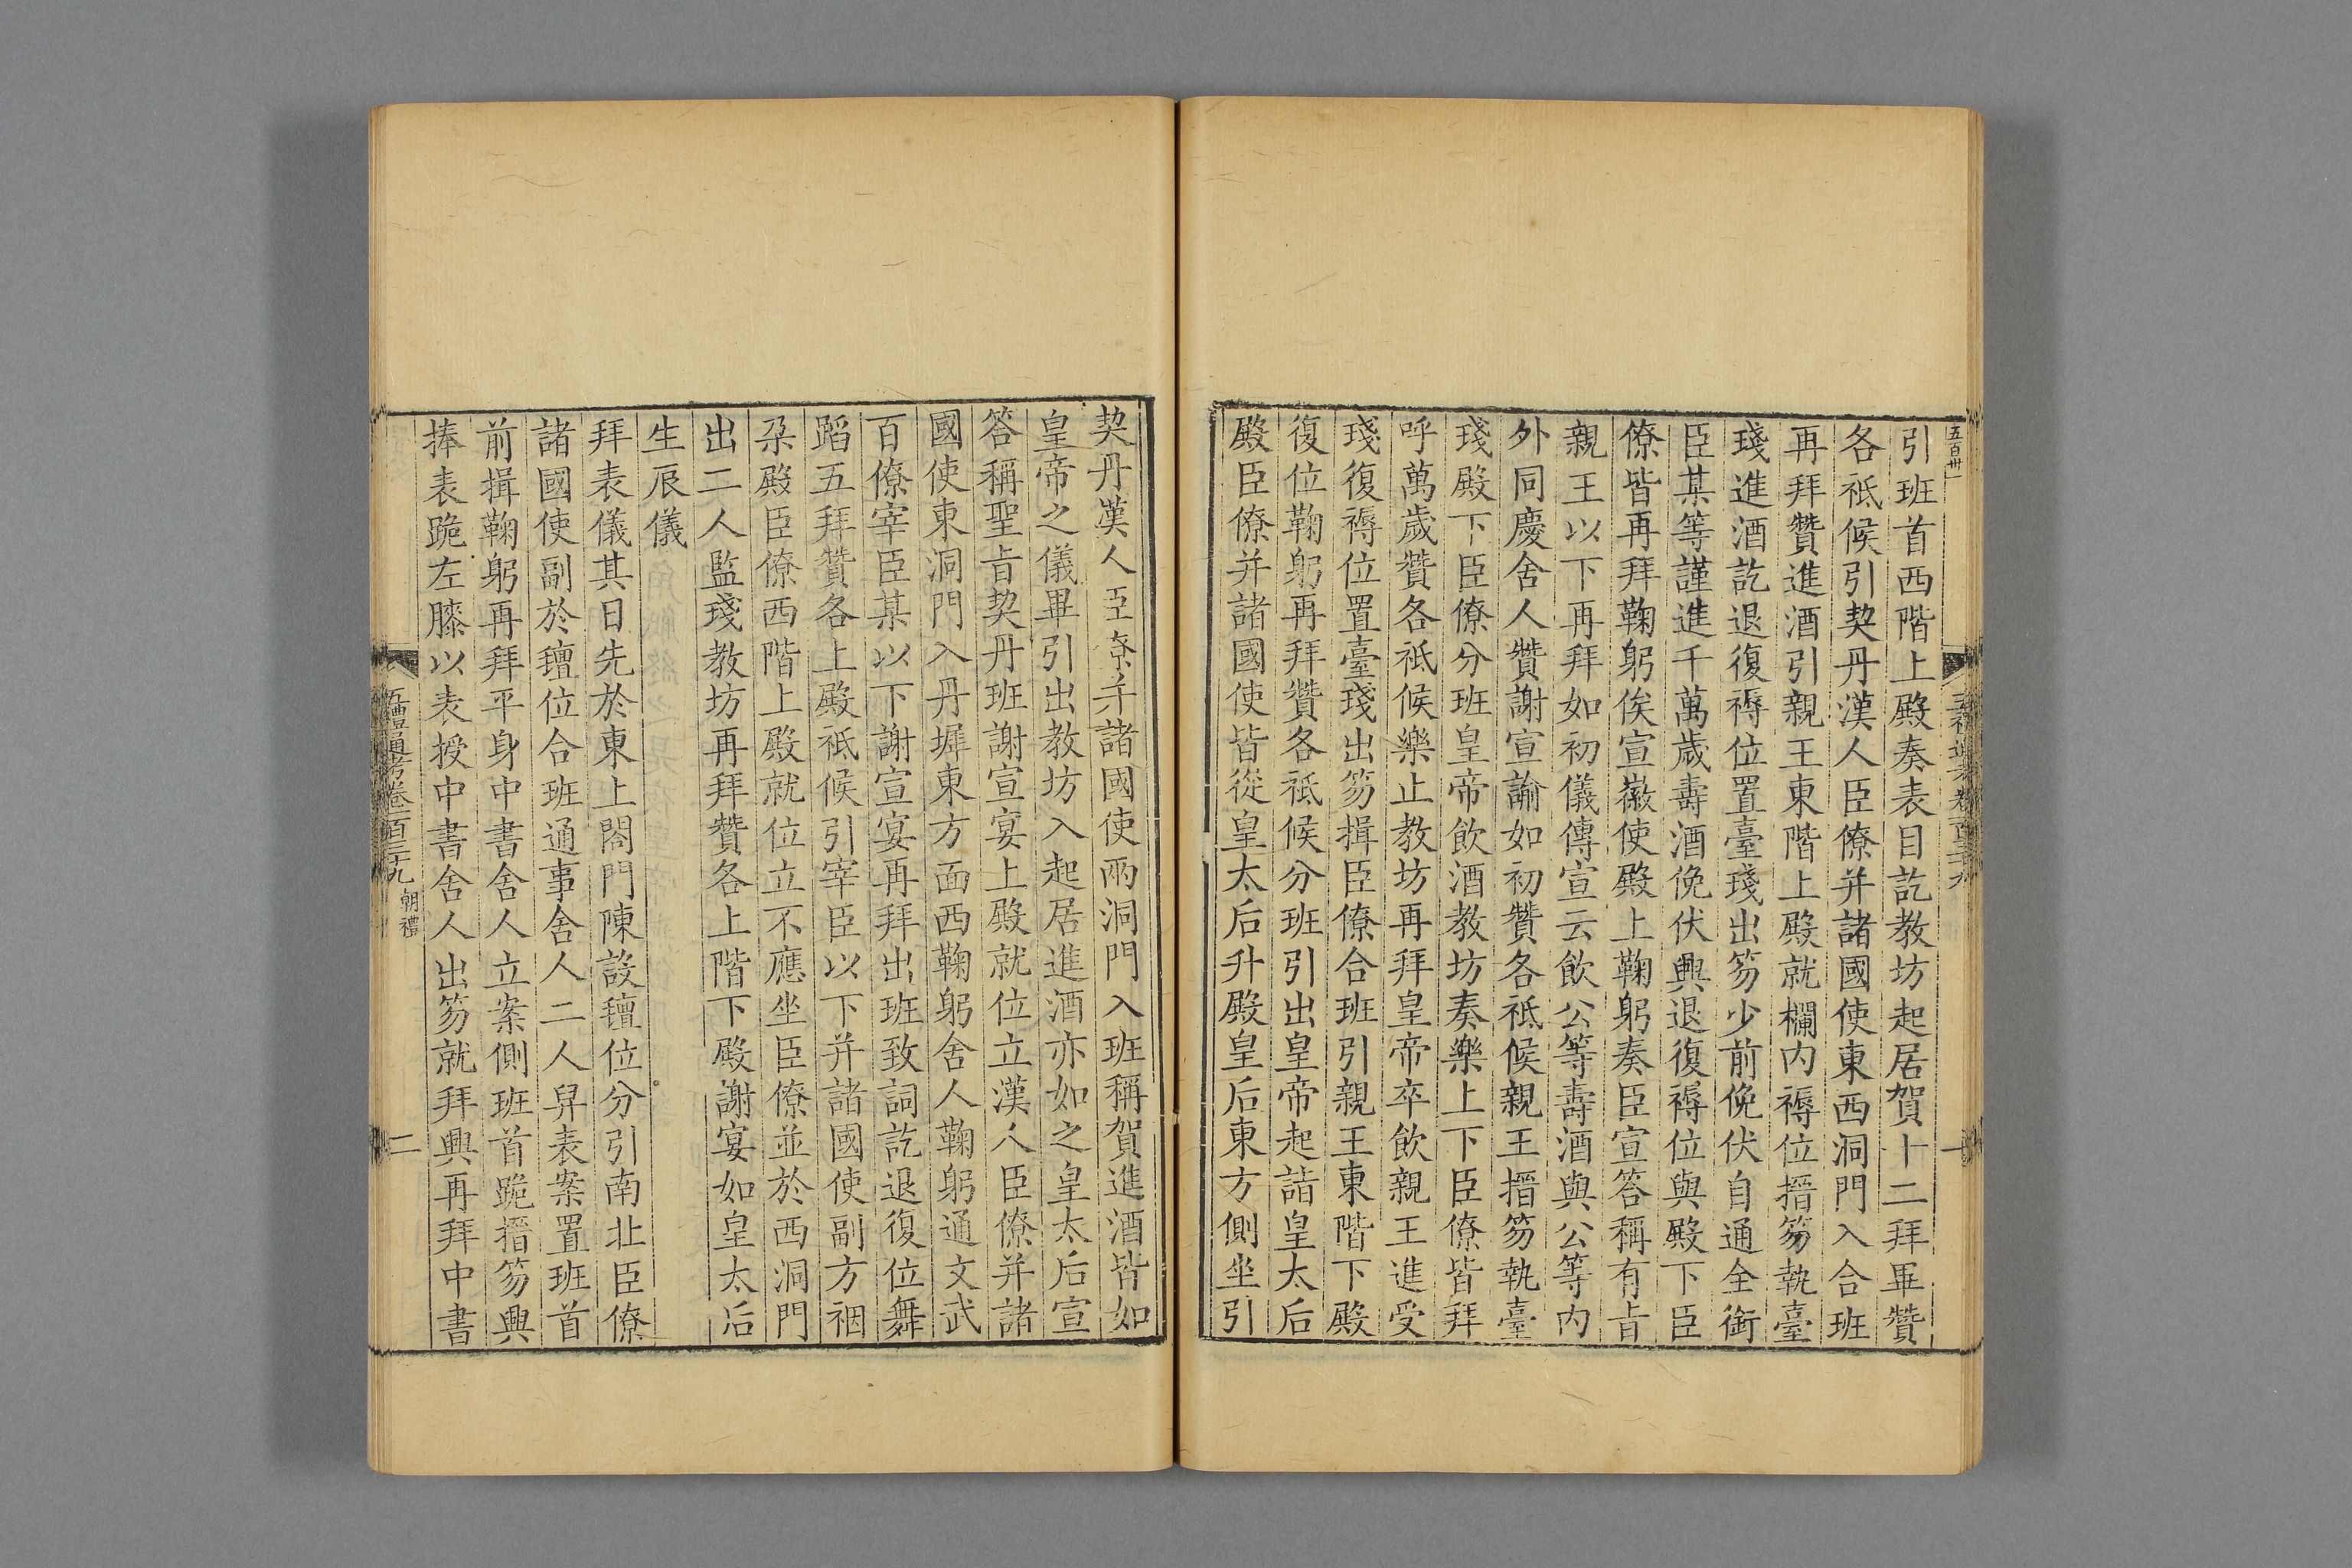 五百卅一
引班首西階上殿奏表目訖教坊起居賀十二拜畢贊
各祗候引契丹漢人臣僚并諸國使東西洞門入合班
再拜贊進酒引親王東階上殿就欄内褥位搢笏執臺
琖進酒訖退復褥位置臺琖出笏少前俛伏自通全銜
臣某等謹進千萬歲壽酒俛伏興退復褥位與殿下臣
僚皆再拜鞠躬俟宣徽使殿上鞠躬奏臣宣答稱有㫖
親王以下再拜如初儀傳宣云飲公等壽酒與公等内
外同慶舍人贊謝宣諭如初贊各祗候親王搢笏執臺
琖殿下臣僚分班皇帝飲酒教坊奏樂上下臣僚皆拜
呼萬歲贊各祗候樂止教坊再拜皇帝卒飲親王進受
琖復褥位置臺琖出笏揖臣僚合班引親王東階下殿
復位鞠躬再拜贊各祗候分班引出皇帝起詣皇太后
殿臣僚并諸國使皆從皇太后升殿皇后東方側坐引
契丹漢人臣僚并諸國使兩洞門入班稱賀進酒皆如
皇帝之儀畢引出教坊入起居進酒亦如之皇太后宣
答稱聖㫖契丹班謝宣宴上殿就位立漢人臣僚并諸
國使東洞門入丹墀東方面西鞠躬舍人鞠躬通文武
百僚宰臣某以下謝宣宴再拜出班致詞訖退復位舞
蹈五拜贊各上殿祗候引宰臣以下并諸國使副方裀
朶殿臣僚西階上殿就位立不應坐臣僚並於西洞門
出二人監琖教坊再拜贊各上階下殿謝宴如皇太后
生辰儀
拜表儀其日先於東上閤門陳設氊位分引南北臣僚
諸國使副於氊位合班通事舍人二人舁表案置班首
前揖鞠躬再拜平身中書舍人立案側班首跪搢笏興
捧表跪左膝以表授中書舍人出笏就拜興再拜中書
五禮通考卷一百三十九 朝禮
二